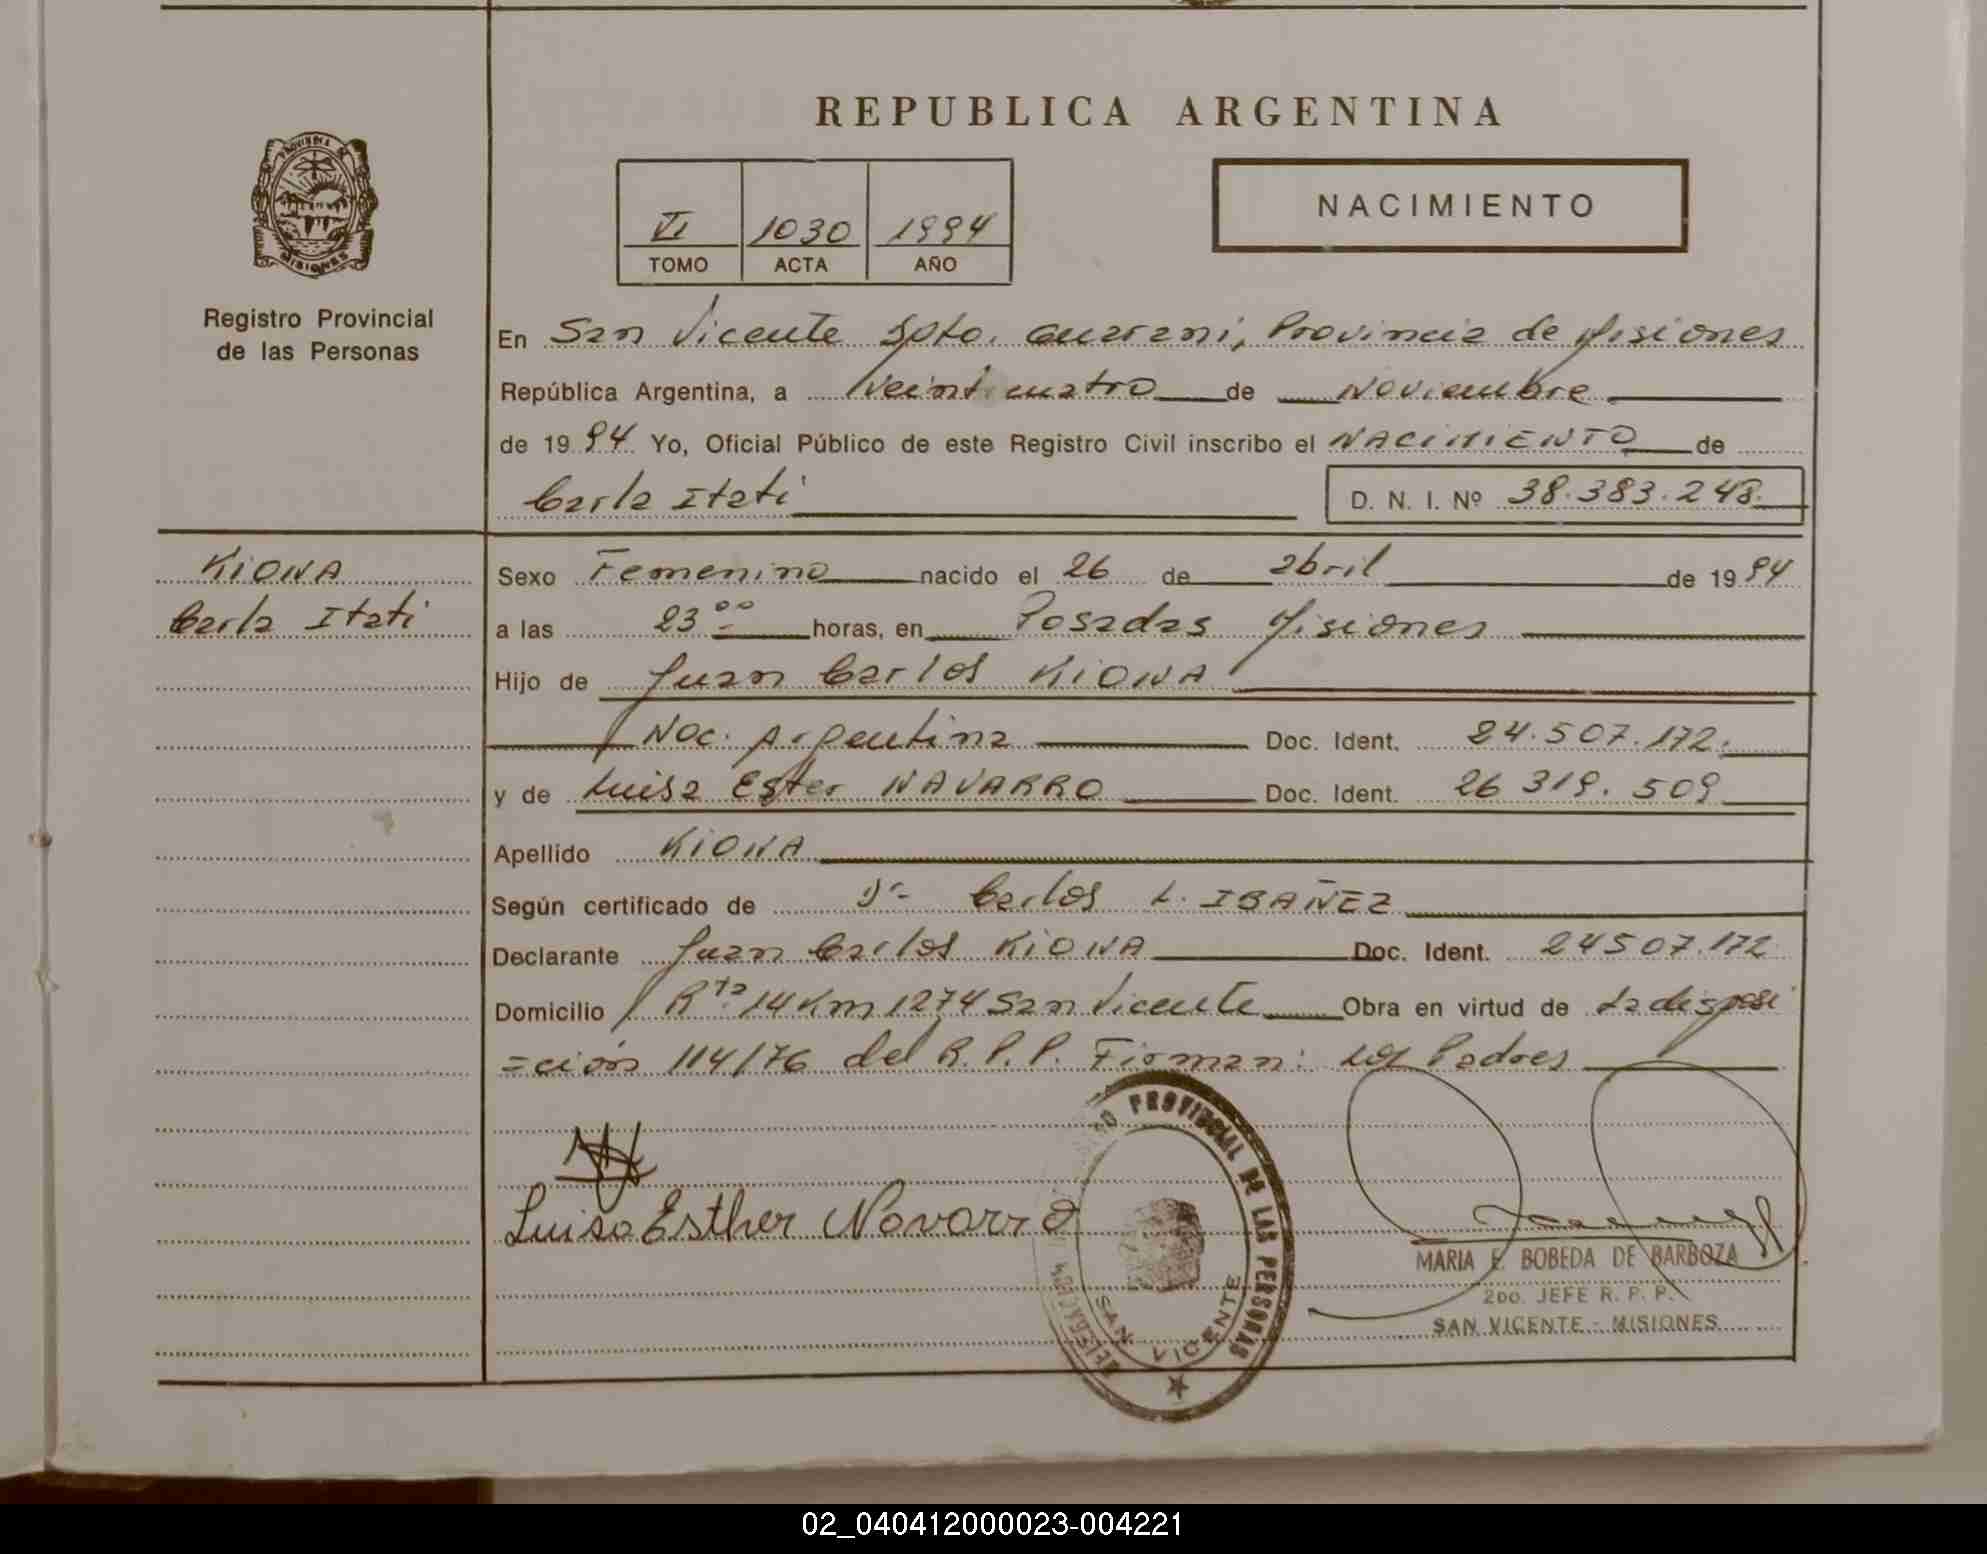 REPUBLICA ARGENTINA
PROVINCIA DE
MISIONES
Registro Provincial
de las Personas
VI 1030 1994
TOMO ACTA AÑO
NACIMIENTO
En San Vicente Dpto. Guarani, Provincia de Misiones
República Argentina, a Veinticuatro de Noviembre
de 1994 Yo, Oficial Público de este Registro Civil inscribo el NACIMIENTO de
Carla Itati D. N. I. Nº 38.383.248.
KIONA
Carla Itati
Sexo Femenino nacido el 26 de abril de 1994
a las 23 00 horas, en Posadas Misiones
Hijo de Juan Carlos KIONA
Nac. Argentina Doc. Ident. 24.507.172.
y de Luisa Ester NAVARRO Doc. Ident. 26 319. 509
Apellido KIONA
Según certificado de Dr. Carlos L. IBAÑEZ
Declarante Juan Carlos KIONA Doc. Ident. 24507.172
Domicilio Rta 14 Km 1274 San Vicente Obra en virtud de La disposi
=ción 114/76 del R. P. P. Firman: Los Padres
Luisa Esther Navarro
PROVINCIAL DE LAS PERSONAS
SAN VICENTE
MARIA E. BOBEDA DE BARBOZA
2DO. JEFE R. P. P.
SAN VICENTE - MISIONES
02_040412000023-004221